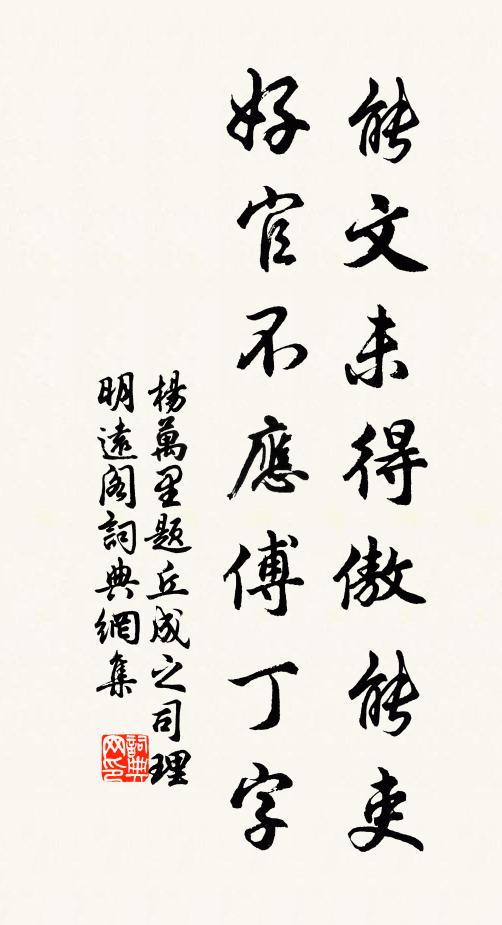 能文未得傲能吏
好官不應傅丁字
楊萬里題丘成之司理
明遠阁詞典網集
詞典网印